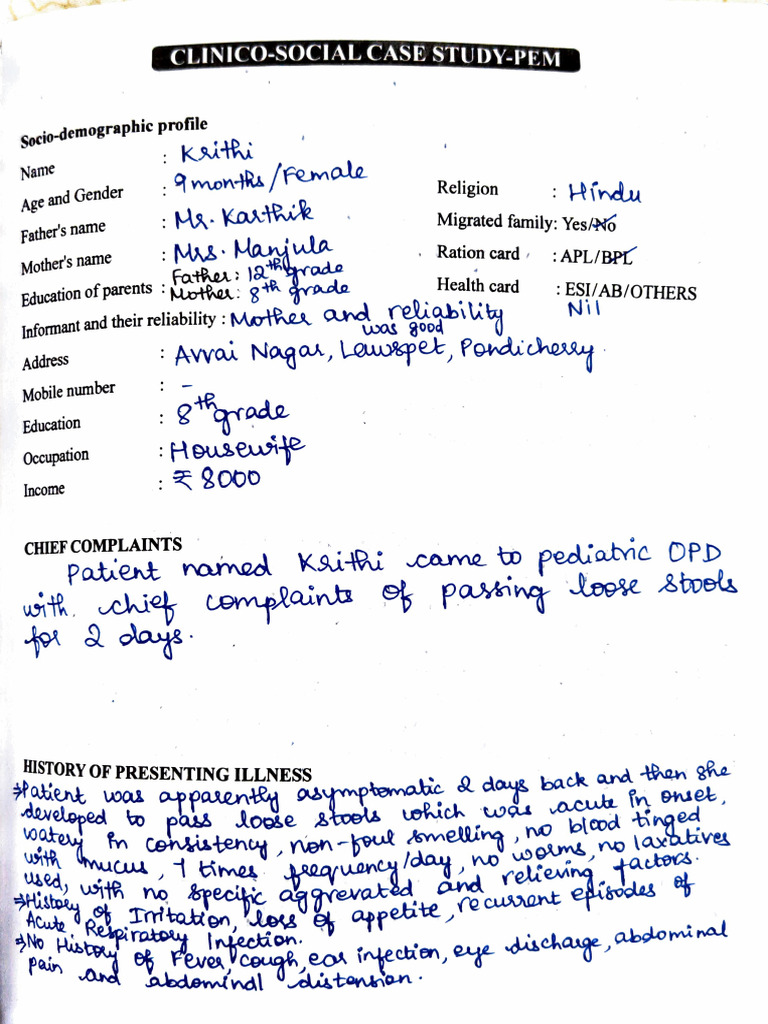 CLINICO-SOCIAL CASE STUDY-PEM
Socio-demographic profile
Name : Krithi
Age and Gender : 9 months/Female
Religion : Hindu
Father's name : Mr. Karthik
Migrated family: Yes/No
Mother's name : Mrs. Manjula
Ration card : APL/BPL
Education of parents : Father: 12th grade
Mother: 8th grade
Health card : ESI/AB/OTHERS
Nil
Informant and their reliability : Mother and reliability
was good
Address : Avvai Nagar, Lawspet, Pondicherry.
Mobile number : -
Education : 8th grade
Occupation : Housewife
Income : ₹ 8000
CHIEF COMPLAINTS
Patient named Krithi came to pediatric OPD
with chief complaints of passing loose stools
for 2 days.
HISTORY OF PRESENTING ILLNESS
⇒Patient was apparently asymptomatic 2 days back and then she
developed to pass loose stools which was acute in onset,
watery in consistency, non-foul smelling, no blood tinged
with mucus, 7 times frequency/day, no worms, no laxatives
used, with no specific aggrevated and relieving factors.
⇒History of Irritation, loss of appetite, recurrent episodes of
Acute Respiratory Infection.
⇒No History of Fever, cough, ear infection, eye discharge, abdominal
pain and abdominal distension.